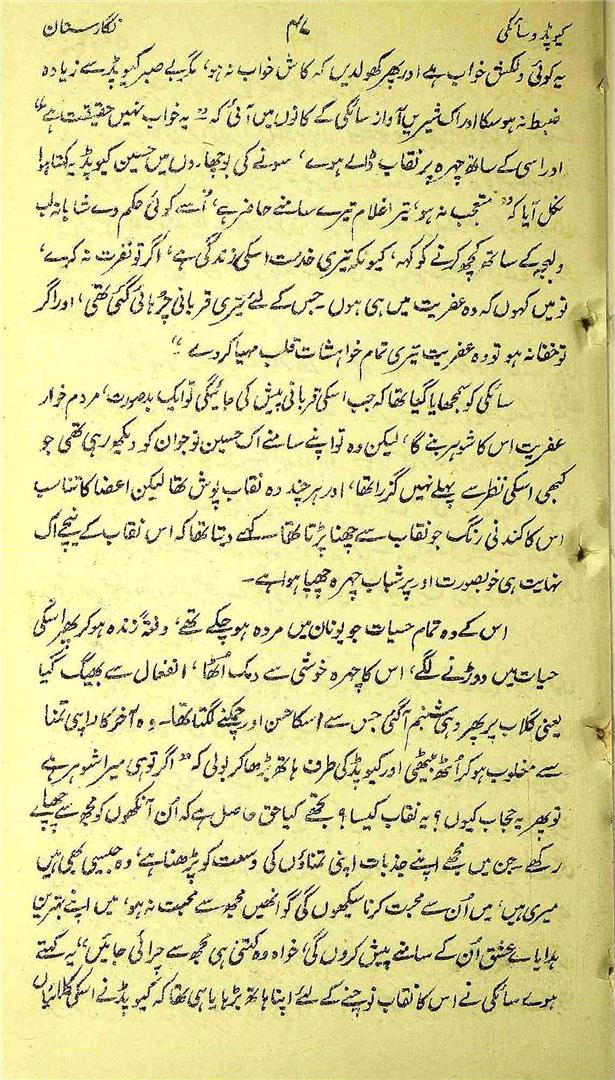 کیوپڈ و سائکی ۴۷ نگارستان
یہ کوئی دلکش خواب ہے اور پھر کھولدیں کہ کاش خواب نہ ہو، مگر بے صبر کیوپڈ سے زیادہ
ضبط نہ ہو سکا اور اک شیریں آواز سائکی کے کانوں میں آئی کہ "یہ خواب نہیں حقیقت ہے"
اور اسی کے ساتھ چہرہ پر نقاب ڈالے ہوے، سونے کی بوچھاروں میں حسین کیوپڈ یہ کہتا ہوا
نکل آیا کہ "متعجب نہ ہو، تیرا غلام تیرے سامنے حاضر ہے، اُسے کوئی حکم دے شاہانہ لب
ولہجہ کے ساتھ کچھ کرنے کو کہہ، کیونکہ تیری خدمت اسکی زندگی ہے، اگر تو نفرت نہ کرے،
تو میں کہوں کہ وہ عفریت میں ہی ہوں۔ جس کے لئے تیری قربانی چڑہائی گئی تھی، اور اگر
تو خفا نہ ہو تو وہ عفریت تیری تمام خواہشات قلب مہیا کردے۔"
سائکی کو سمجھایا گیا تھا کہ جب اسکی قربانی پیش کی جائیگی تو ایک بدصورت، مردم خوار
عفریت اس کا شوہر بنے گا، لیکن وہ تو اپنے سامنے اک حسین نوجوان کو دیکھ رہی تھی جو
کبھی اسکی نظر سے پہلے نہیں گزرا تھا، اور ہر چند وہ نقاب پوش تھا لیکن اعضا کا تناسب
اس کا کندنی رنگ جو نقاب سے چھنا پڑتا تھا۔ کہے دیتا تھا کہ اس نقاب کے نیچے اک
نہایت ہی خوبصورت اور پر شباب چہرہ چھپا ہوا ہے۔
اس کے وہ تمام حسیات جو یونان میں مردہ ہو چکے تھے، دفعۃً زندہ ہو کر پھر اسکی
حیات میں دوڑنے لگے، اس کا چہرہ خوشی سے دمک اُٹھا، انفعال سے بھیگ گیا
یعنی گلاب پر پھر وہی شبنم آگئی جس سے اسکا حسن اور چمکنے لگتا تھا۔ وہ آخر کار اپنی تمنا
سے مغلوب ہو کر اُٹھ بیٹھی اور کیوپڈ کی طرف ہاتھ بڑھا کر بولی کہ "اگر تو ہی میرا شوہر ہے
تو پھر یہ حجاب کیوں؟ یہ نقاب کیسا؟ تجھے کیا حق حاصل ہے کہ اُن آنکھوں کو مجھ سے چھپائے
رکھے۔ جن میں مجھے اپنے جذبات اپنی تمناؤں کی وسعت کو پڑھنا ہے، وہ جیسی بھی ہیں
میری ہیں، میں اُن سے محبت کرنا سیکھوں گی گو انھیں مجھ سے محبت نہ ہو، میں اپنے بہترین
ہدایاے عشق اُن کے سامنے پیش کروں گی، خواہ وہ کتنی ہی مجھ سے چرائی جائیں" یہ کہتے
ہوے سائکی نے اس کا نقاب نوچنے کے لئے اپنا ہاتھ بڑہایا ہی تھا کہ کیوپڈ نے اسکی کلائیاں